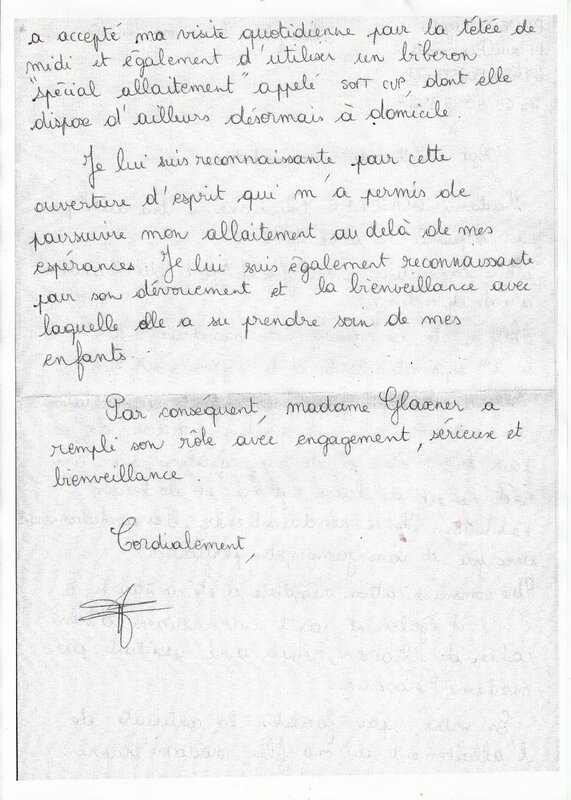 a accepté ma visite quotidienne pour la tétée de
midi et également d'utiliser un biberon
"spécial allaitement" appelé SOFT CUP, dont elle
dispose d'ailleurs désormais à domicile.
Je lui suis reconnaissante pour cette
ouverture d'esprit qui m'a permis de
poursuivre mon allaitement au delà de mes
espérances. Je lui suis également reconnaissante
pour son dévouement et la bienveillance avec
laquelle elle a su prendre soin de mes
enfants.
Par conséquent, madame Glaxner a
rempli son rôle avec engagement, sérieux et
bienveillance.
Cordialement,